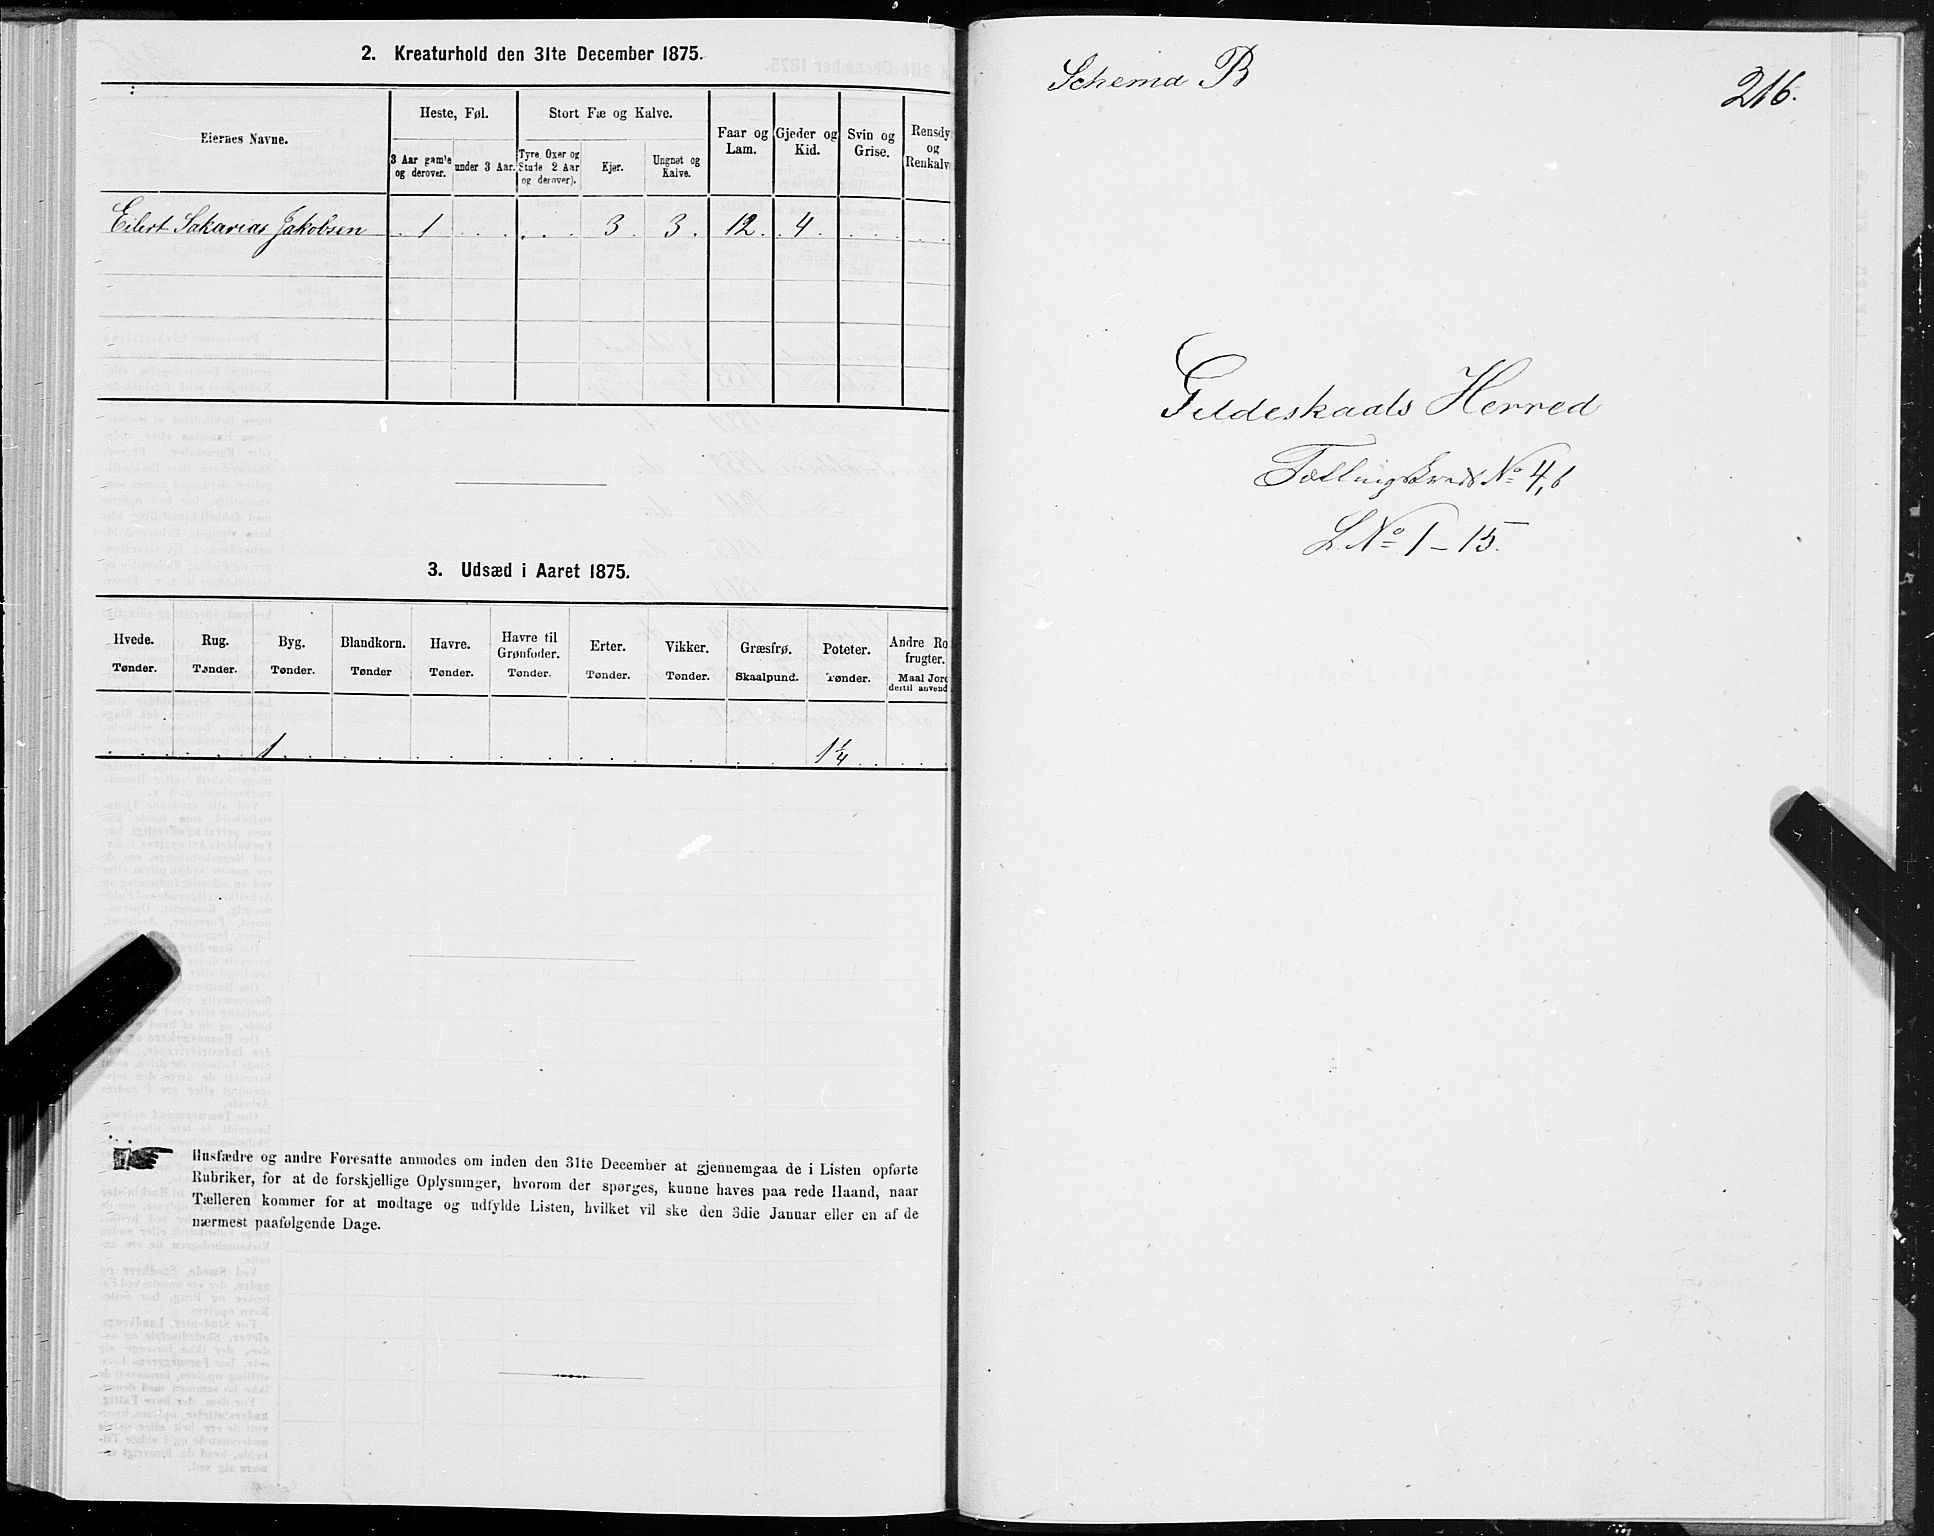 2. Kreaturhold den 31te December 1875.
Eiernes Navne.
Heste, Føl.
Stort Fæ og Kalve.
Faar og Lam.
Gjeder og Kid.
Svin og Grise.
Rensdy og Renkalv
3 Aar gamle og derover.
under 3 Aar.
Tyre, Oxer og Stude (2 Aar og derover).
Kjør.
Ungnøt og Kalve.
Eilert Sakarias Jakobsen . 1 . . . . . . 3 . 3 . 12 . . 4 . . . . . . .
3. Udsæd i Aaret 1875.
Hvede. Rug. Byg. Blandkorn. Havre. Havre til Grønfoder. Erter. Vikker. Græsfrø. Poteter. Andre Ro frugter.
Tønder. Tønder. Tønder. Tønder Tønder. Tønder. Tønder. Tønder. Skaalpund. Tønder. Maal Jord dertil anvend
1 1 1/4
Husfædre og andre Foresatte anmodes om inden den 31te December at gjennemgaa de i Listen opførte
Rubriker, for at de forskjellige Oplysninger, hvorom der spørges, kunne haves paa rede Haand, naar
Tælleren kommer for at modtage og udfylde Listen, hvilket vil ske den 3die Januar eller en af de
nærmest paafølgende Dage.
Schema B
216.
Gildeskaals Herred
Tællingskreds No 4,b
L. No 1 - 15.